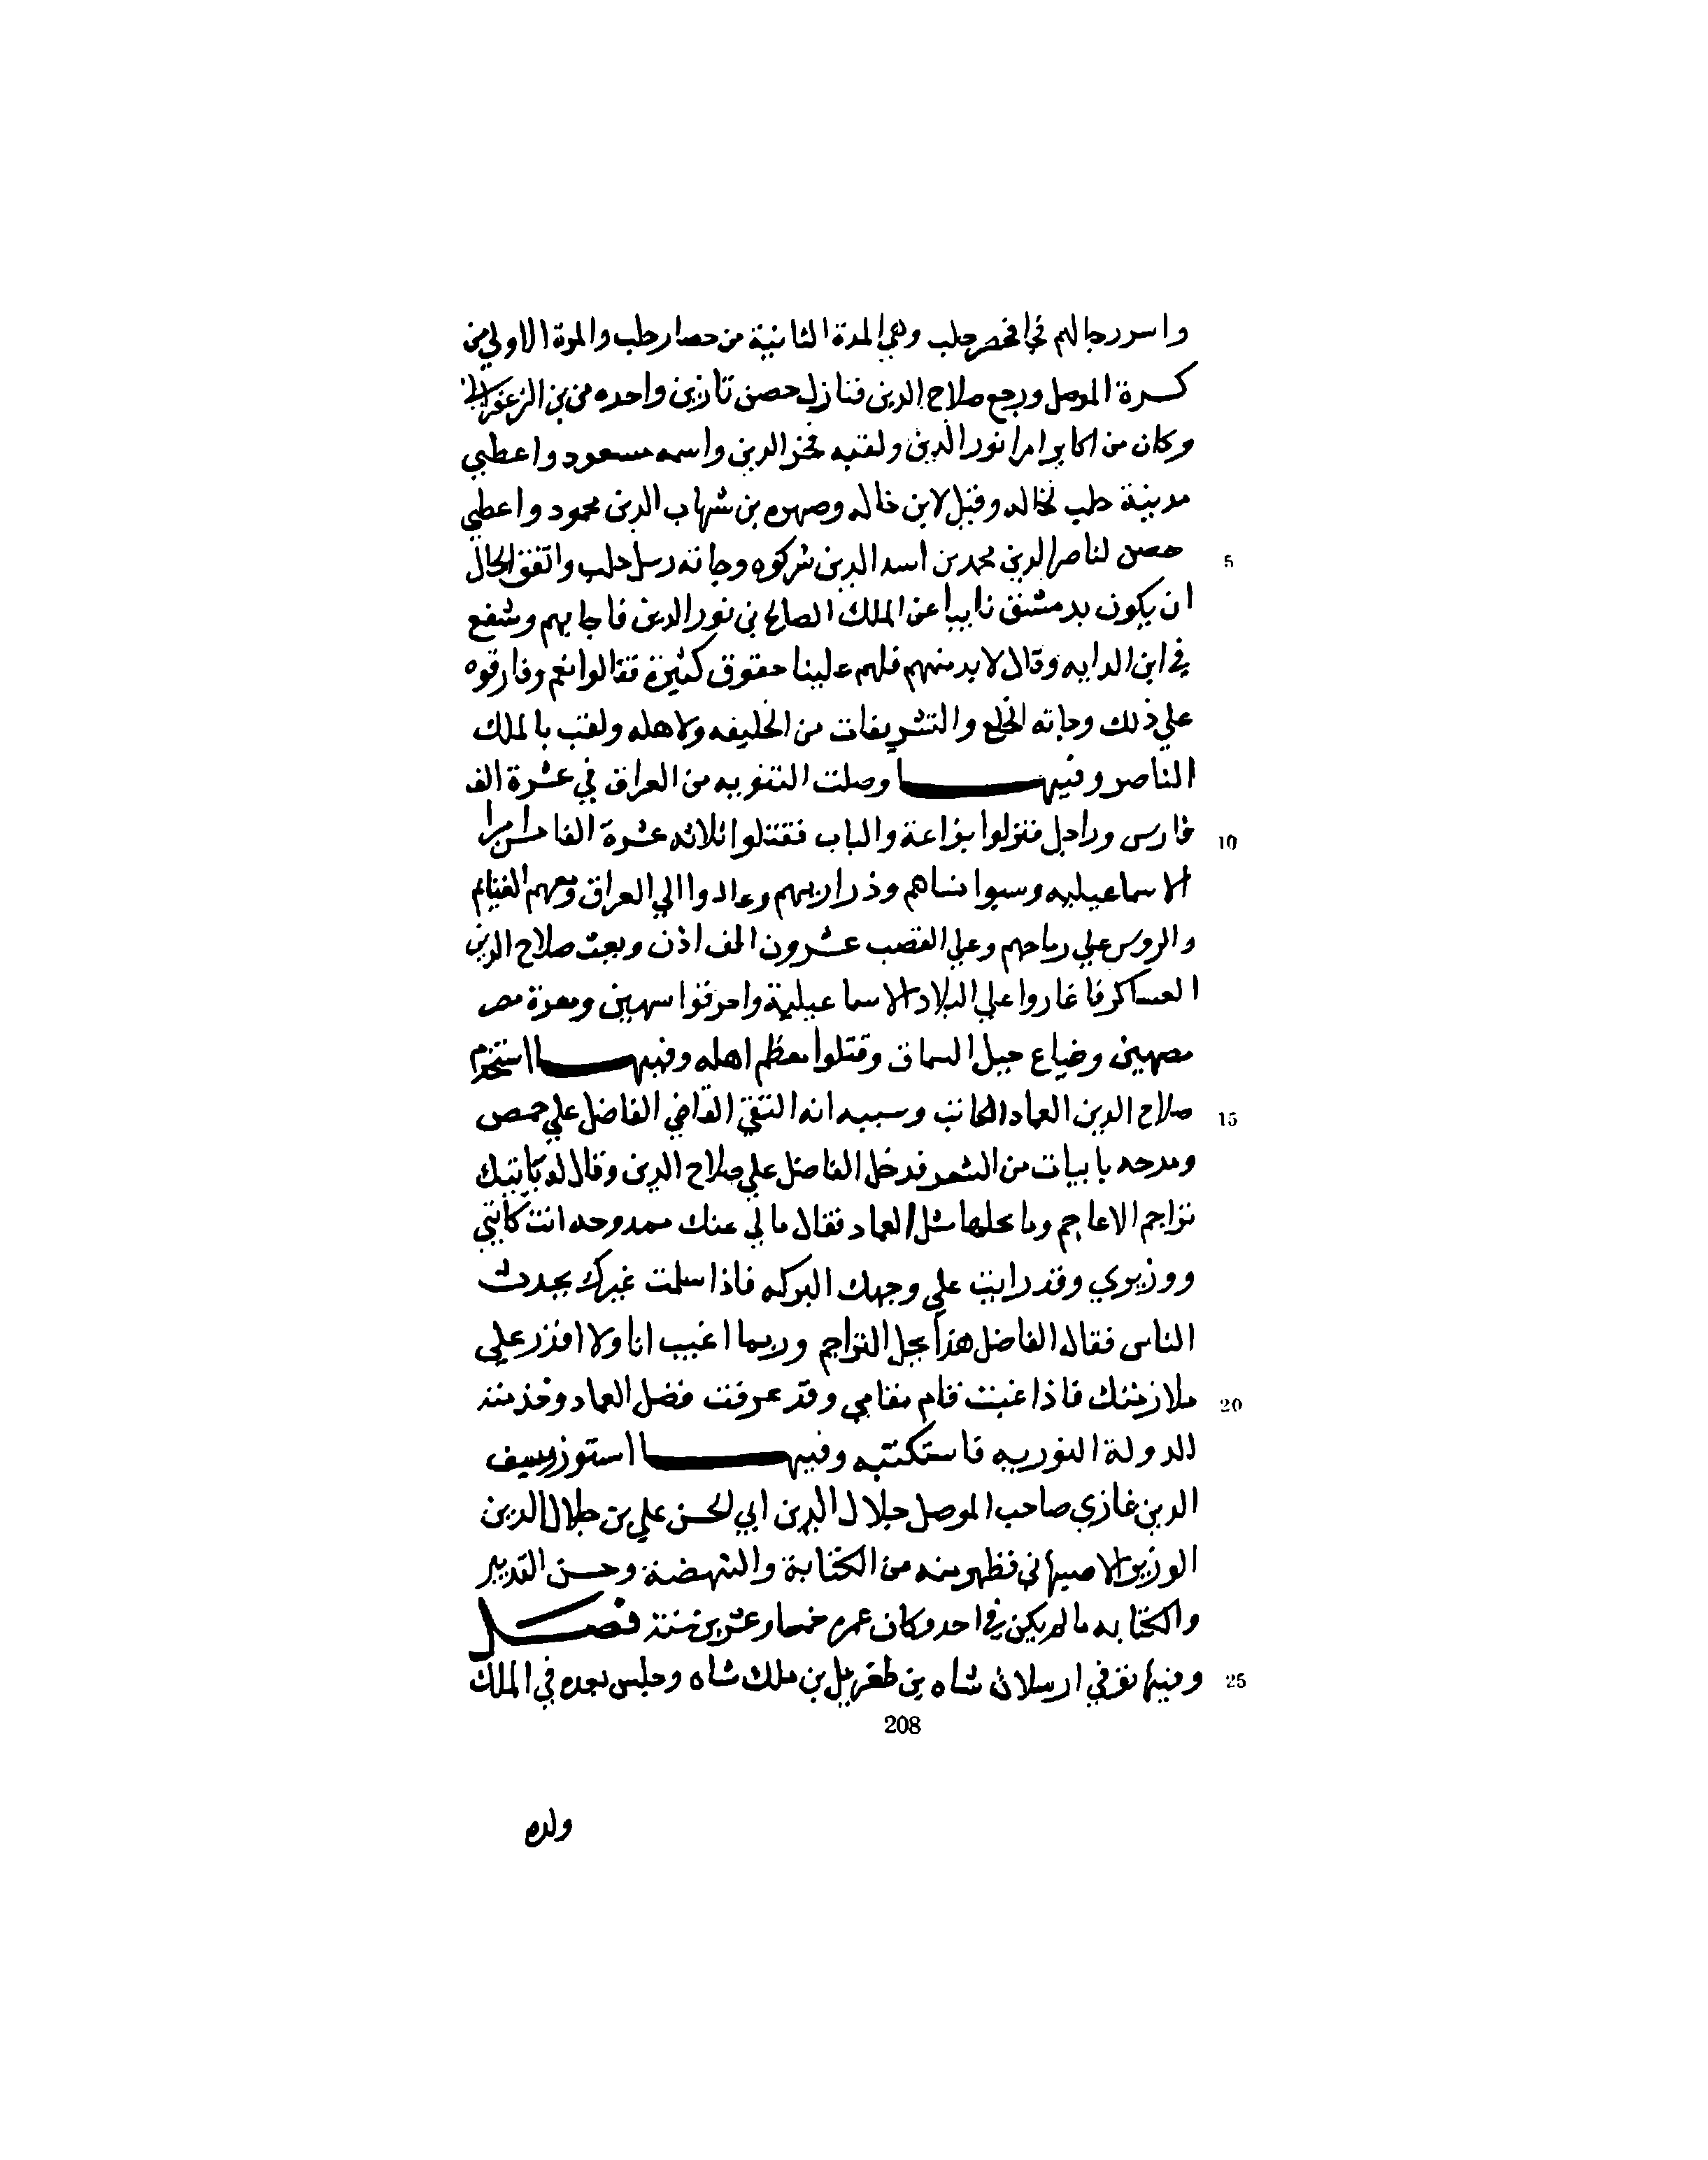 واسر رجالهم في افخم حلب وهي المدة الثانية من حصار حلب والمرة الاولي من
كسرة الموصل ورجع صلاح الدين فنازل حصن تازين واخده من بن الزعفراني
وكان من اكابر امرا نور الدين ولقبه فخز الدين واسمه مسعود واعطي
مدينة حلب لخاله وقيل لابن خاله وصهره بن شهاب الدين محمود واعطي
5 حمص لناصر الدين محمد بن اسد الدين شركوه وجاته رسل حلب واتفق الحال
ان يكون بدمشق نايبا عن الملك الصالح بن نور الدين فاجابهم وشفع
في ابن الدايه وقال لابد منهم فلهم علينا حقوق كثيرة فقالوا نعم وفارقوه
علي ذلك وجاته الخلع والتشريفات من الخليفه ولاهله ولقب بالملك
الناصر وفيها وصلت النبويه من العراق في عشرة الف
10 فارس وراجل فنزلوا بزاعة والباب فقتلوا ثلاثه عشرة الفا
الاسماعيليه وسبوا نساهم وذراريهم وعادوا الي العراق ومعهم الغنايم
والروس علي رماحهم وعلي القصب عشرون الف اذن وبعث صلاح الدين
العساكر فاغاروا علي البلاد الاسماعيلية واحرقوا سرمين ومعرة مص
مصرين وضياع جبل السماق وقتلوا معظم اهله وفيها استخدم
15 صلاح الدين العماد الكاتب وسببه انه التقي القاضي الفاضل علي حمص
ومدحه بابيات من الشعر فدخل الفاضل علي صلاح الدين وقال له تاتيك
تراجم الاعاجم وما يحلها مثل العماد فقال مالي عنك ممدوحه انت كاتبي
ووزيري وقد رايت علي وجهك البركه فاذا سلمت غيرك يحدث
الناس فقال الفاضل هذا يحل التراجم وربما اغيب انا ولا اقدر علي
20 ملازمتك فاذا غبت قام مقامي وقد عرفت فضل العماد وخدمته
للدولة النوريه فاستكتبه وفيها استوزر سيف
الدين غازي صاحب الموصل جلال الدين ابي الحسن علي بن جلال الدين
الوزير الاصبهاني فظهر منه من الكتابة والنهضة وحسن التدبير
والكتابه مالم يكن في احد وكان عمره خمسا وعشرين سنة فصل
25 وفيها توفي ارسلان شاه بن طغريل بن ملك شاه وجلس بعده في الملك
208
ولده